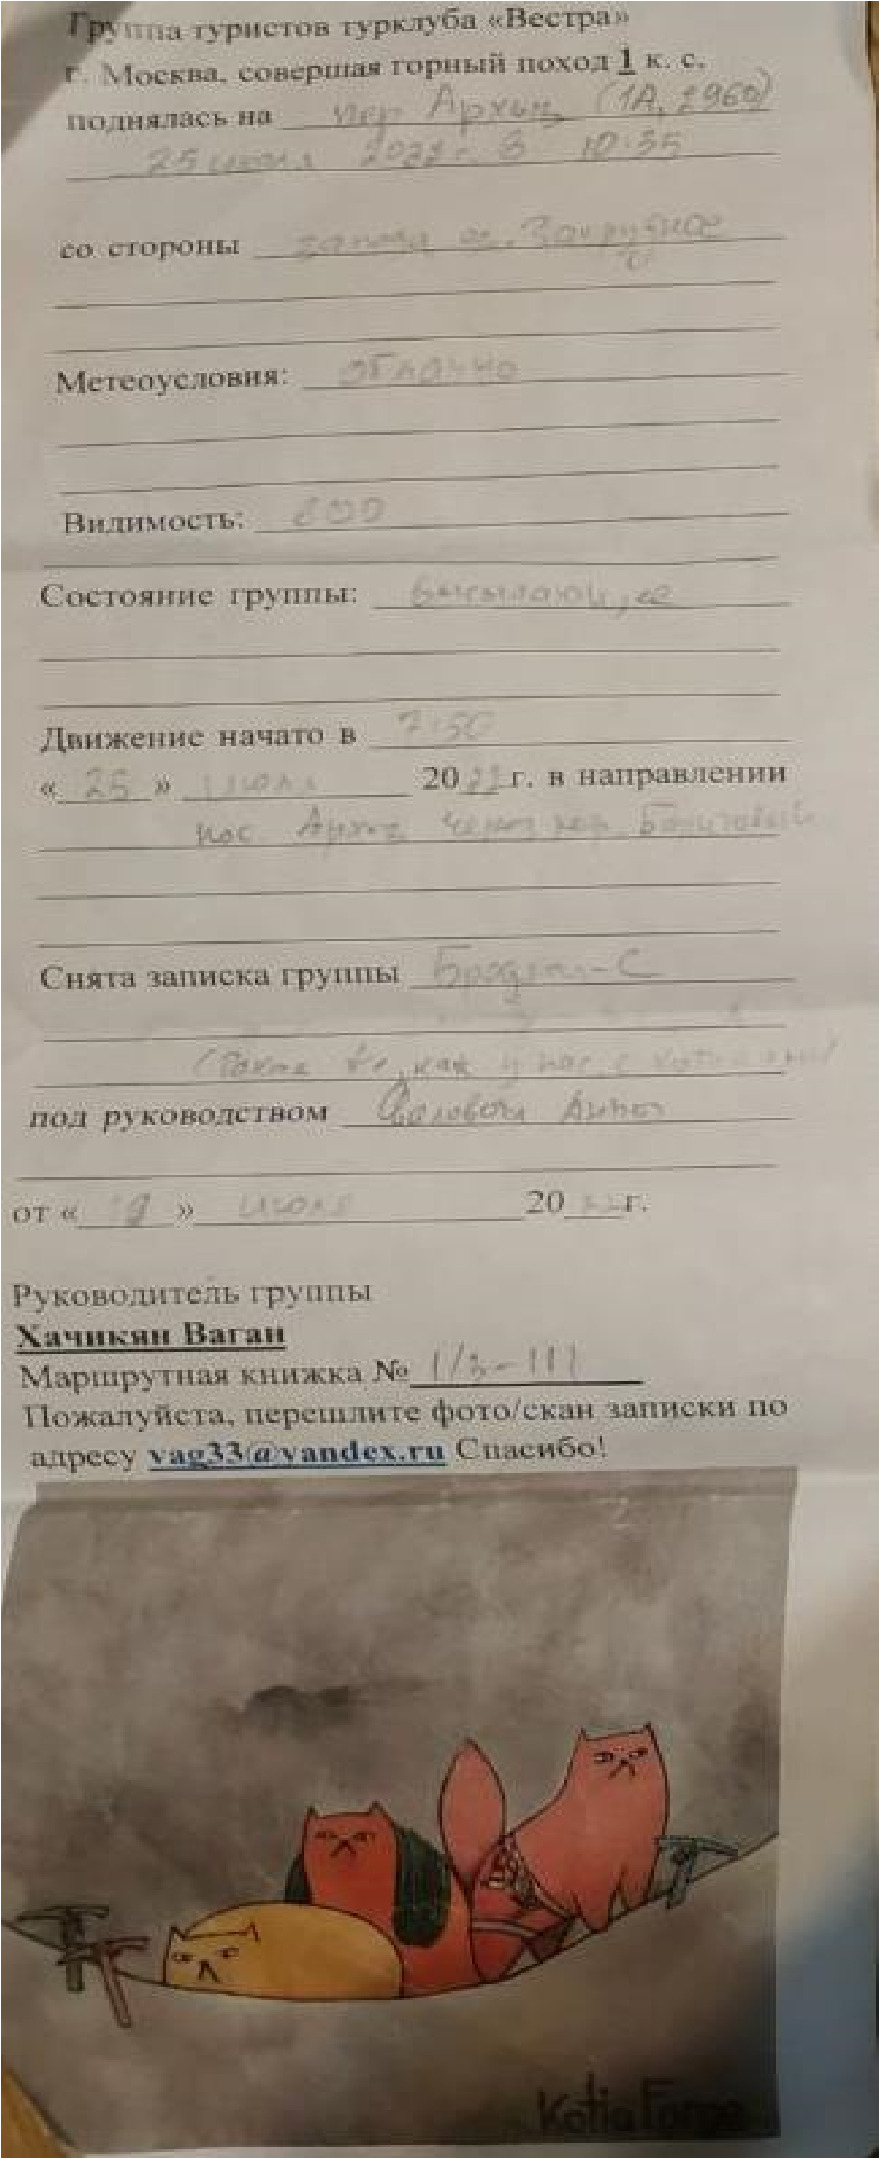 Группа туристов турклуба «Вестра»
г. Москва, совершая горный поход 1 к. с.
поднялась на пер Архыз (1А, 2960)
25 июля 2022 г. в 10:35
со стороны запада оз. Запрудное
Метеоусловия: облачно
Видимость: 800
Состояние группы:
Движение начато в 7:50
«25» июля 2022 г. в направлении
пос Архыз через пер.
Снята записка группы Бродяги-С
(такая же, как у нас, с котиками)
под руководством
от «19» июля 2022 г.
Руководитель группы
Хачикян Ваган
Маршрутная книжка № 1/3-111
Пожалуйста, перешлите фото/скан записки по
адресу vag33@yandex.ru Спасибо!
Katia